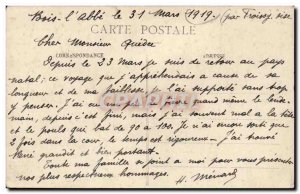 Bois l'abbé le 31 Mars 1919 (par Froissy, Oise
CARTE POSTALE
Cher Monsieur
CORRESPONDANCE
ADRESSE
Depuis le 23 Mars je suis de retour au pays
natal; ce voyage que j'appréhendais a cause de sa
longueur et de ma faiblesse, l'ai supporté sans trop
y penser. J'ai eu grand même le lende-
main, depuis c'est fini, mais j'ai souvent mal a la tête
et le pouls qui bat de 90 a 100. Je n'ai encore sorti que
2 fois dans la cour, le temps est rigoureux. J'ai trouvé
René grandit et bien portant.
Toute ma famille se joint a moi pour vous présenter
nos plus respectueux hommages.
Ménard